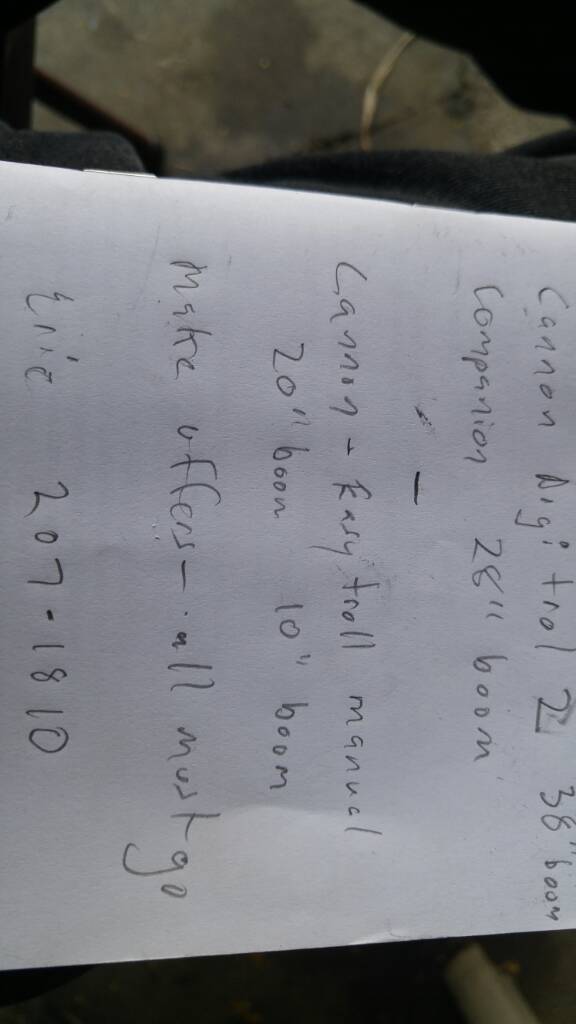 Cannon Digitrol II 38" boom
Companion 28" boom
-
Cannon - Easy troll manual
20" boom 10" boom
Make offers - all must go
Eric 207-1810